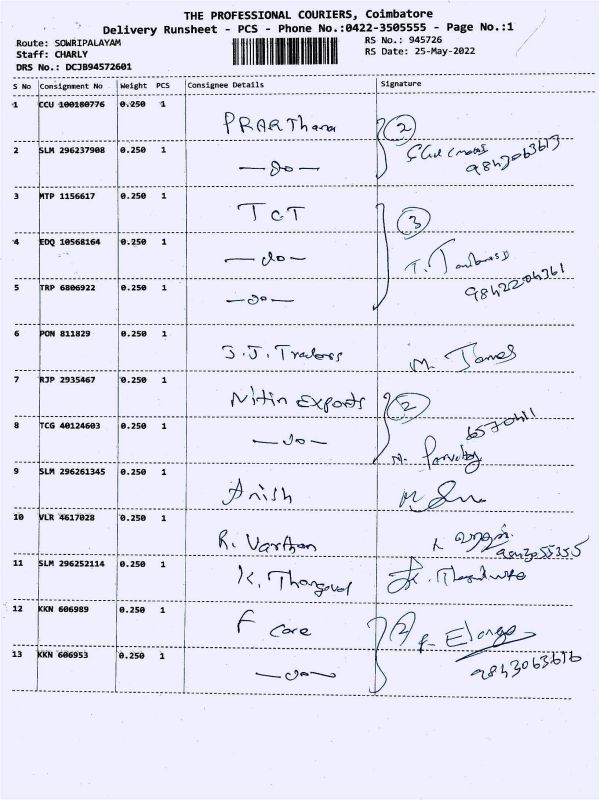 THE PROFESSIONAL COURIERS, Coimbatore
Delivery Runsheet - PCS - Phone No.:0422-3505555 - Page No.:1
Route: SOWRIPALAYAM RS No.: 945726
Staff: CHARLY RS Date: 25-May-2022
DRS No.: DCJB94572601
S No Consignment No Weight PCS Consignee Details Signature
1 CCU 100180776 0.250 1 PRARThana 2
2 SLM 296237908 0.250 1 —do— 9843063613
3 MTP 1156617 0.250 1 TCT 3
4 EDQ 10568164 0.250 1 —do— T.
5 TRP 6806922 0.250 1 —do— 9842204361
6 PON 811829 0.250 1 J.J. Traders M. James
7 RJP 2935467 0.250 1 Nitin Exports 2
8 TCG 40124603 0.250 1 —do—
9 SLM 296261345 0.250 1 Anish
10 VLR 4617028 0.250 1 R. Varthan
11 SLM 296252114 0.250 1 K. Thangavel K.
12 KKN 606989 0.250 1 F care 2
13 KKN 606953 0.250 1 —do— 9843063616